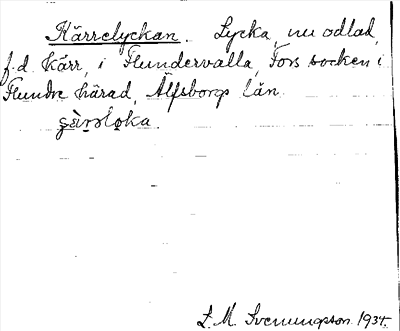 Kärrelyckan. Lycka, nu odlad,
f. d. kärr, i Flundervalla, Fors socken i
Flundre härad, Älfsborgs län.
L. M. Svenungsson 1934.